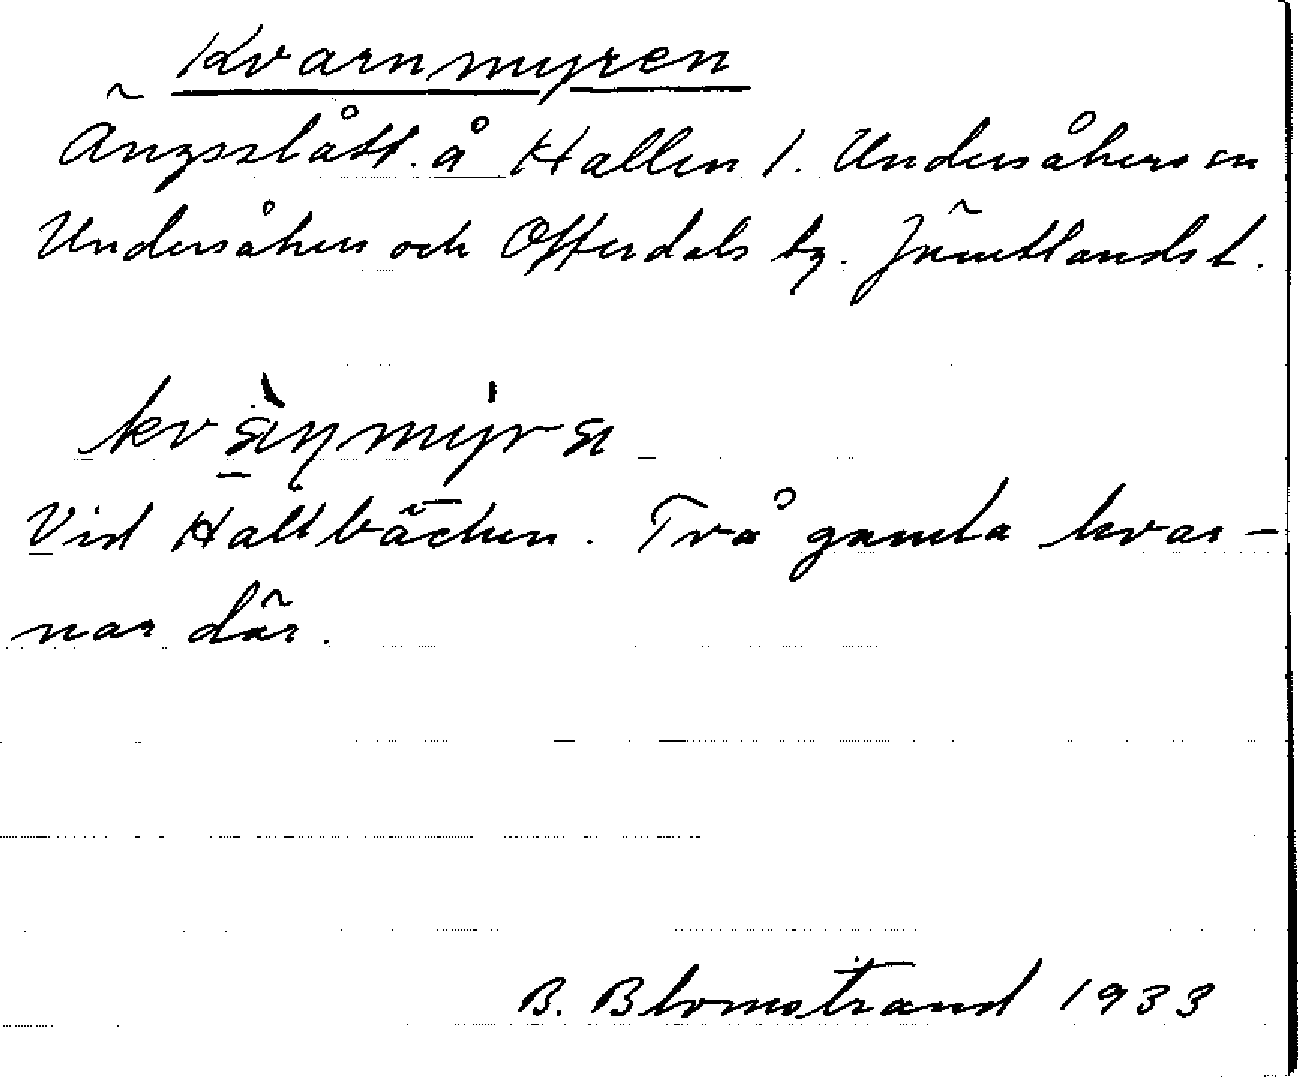 Kvarnmyren
Ängsslått. å Hallen 1. Undersåkers sn
Undersåkers och Offerdals tg. Jämtlands l.
kvàɳmy̍ra
Vid Hallbäcken. Två gamla kvar-
nar där.
B. Blomstrand 1933